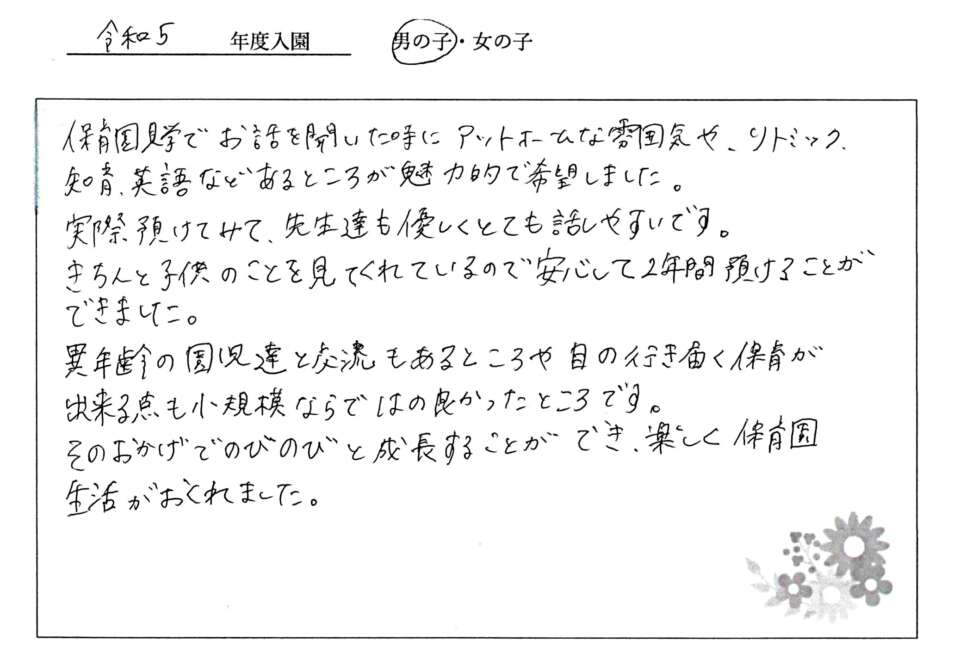 令和5 年度入園 男の子・女の子
保育園見学でお話を聞いた時にアットホームな雰囲気や、リトミック、
知育、英語などあるところが魅力的で希望しました。
実際預けてみて、先生達も優しくとても話しやすいです。
きちんと子供のことを見てくれているので安心して2年間預けることが
できました。
異年齢の園児達と交流もあるところや目の行き届く保育が
出来る点も小規模ならではの良かったところです。
そのおかげでのびのびと成長することができ、楽しく保育園
生活がおくれました。